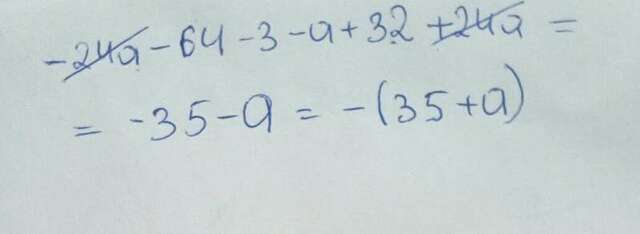 -24a - 64 - 3 - a + 32 + 24a =
= -35 - a = -(35 + a)